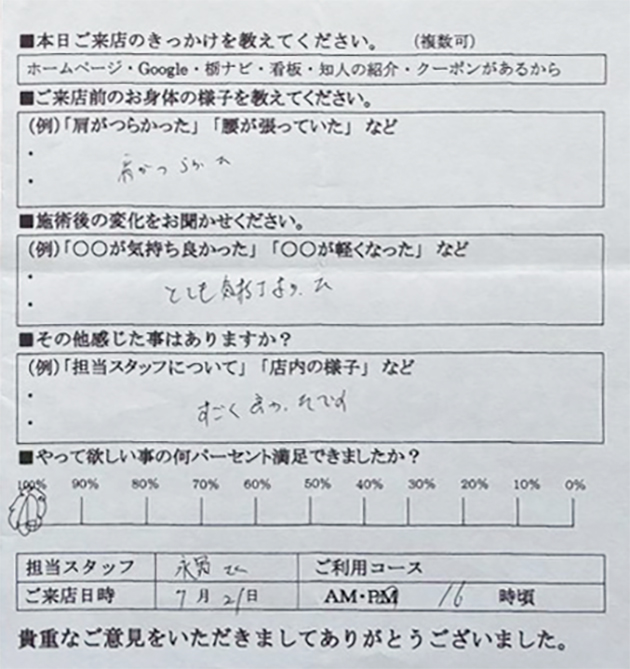 ■本日ご来店のきっかけを教えてください。　（複数可）
ホームページ・Google・栃ナビ・看板・知人の紹介・クーポンがあるから
■ご来店前のお身体の様子を教えてください。
(例)「肩がつらかった」「腰が張っていた」など
・
・ 肩がつらかった
■施術後の変化をお聞かせください。
(例)「〇〇が気持ち良かった」「〇〇が軽くなった」など
・
・ とても気持ちよかった
■その他感じた事はありますか？
(例)「担当スタッフについて」「店内の様子」など
・
・ すごく良かったです
■やって欲しい事の何パーセント満足できましたか？
100% 90% 80% 70% 60% 50% 40% 30% 20% 10% 0%
担当スタッフ ご利用コース
ご来店日時 7月21日 AM・PM 16 時頃
貴重なご意見をいただきましてありがとうございました。